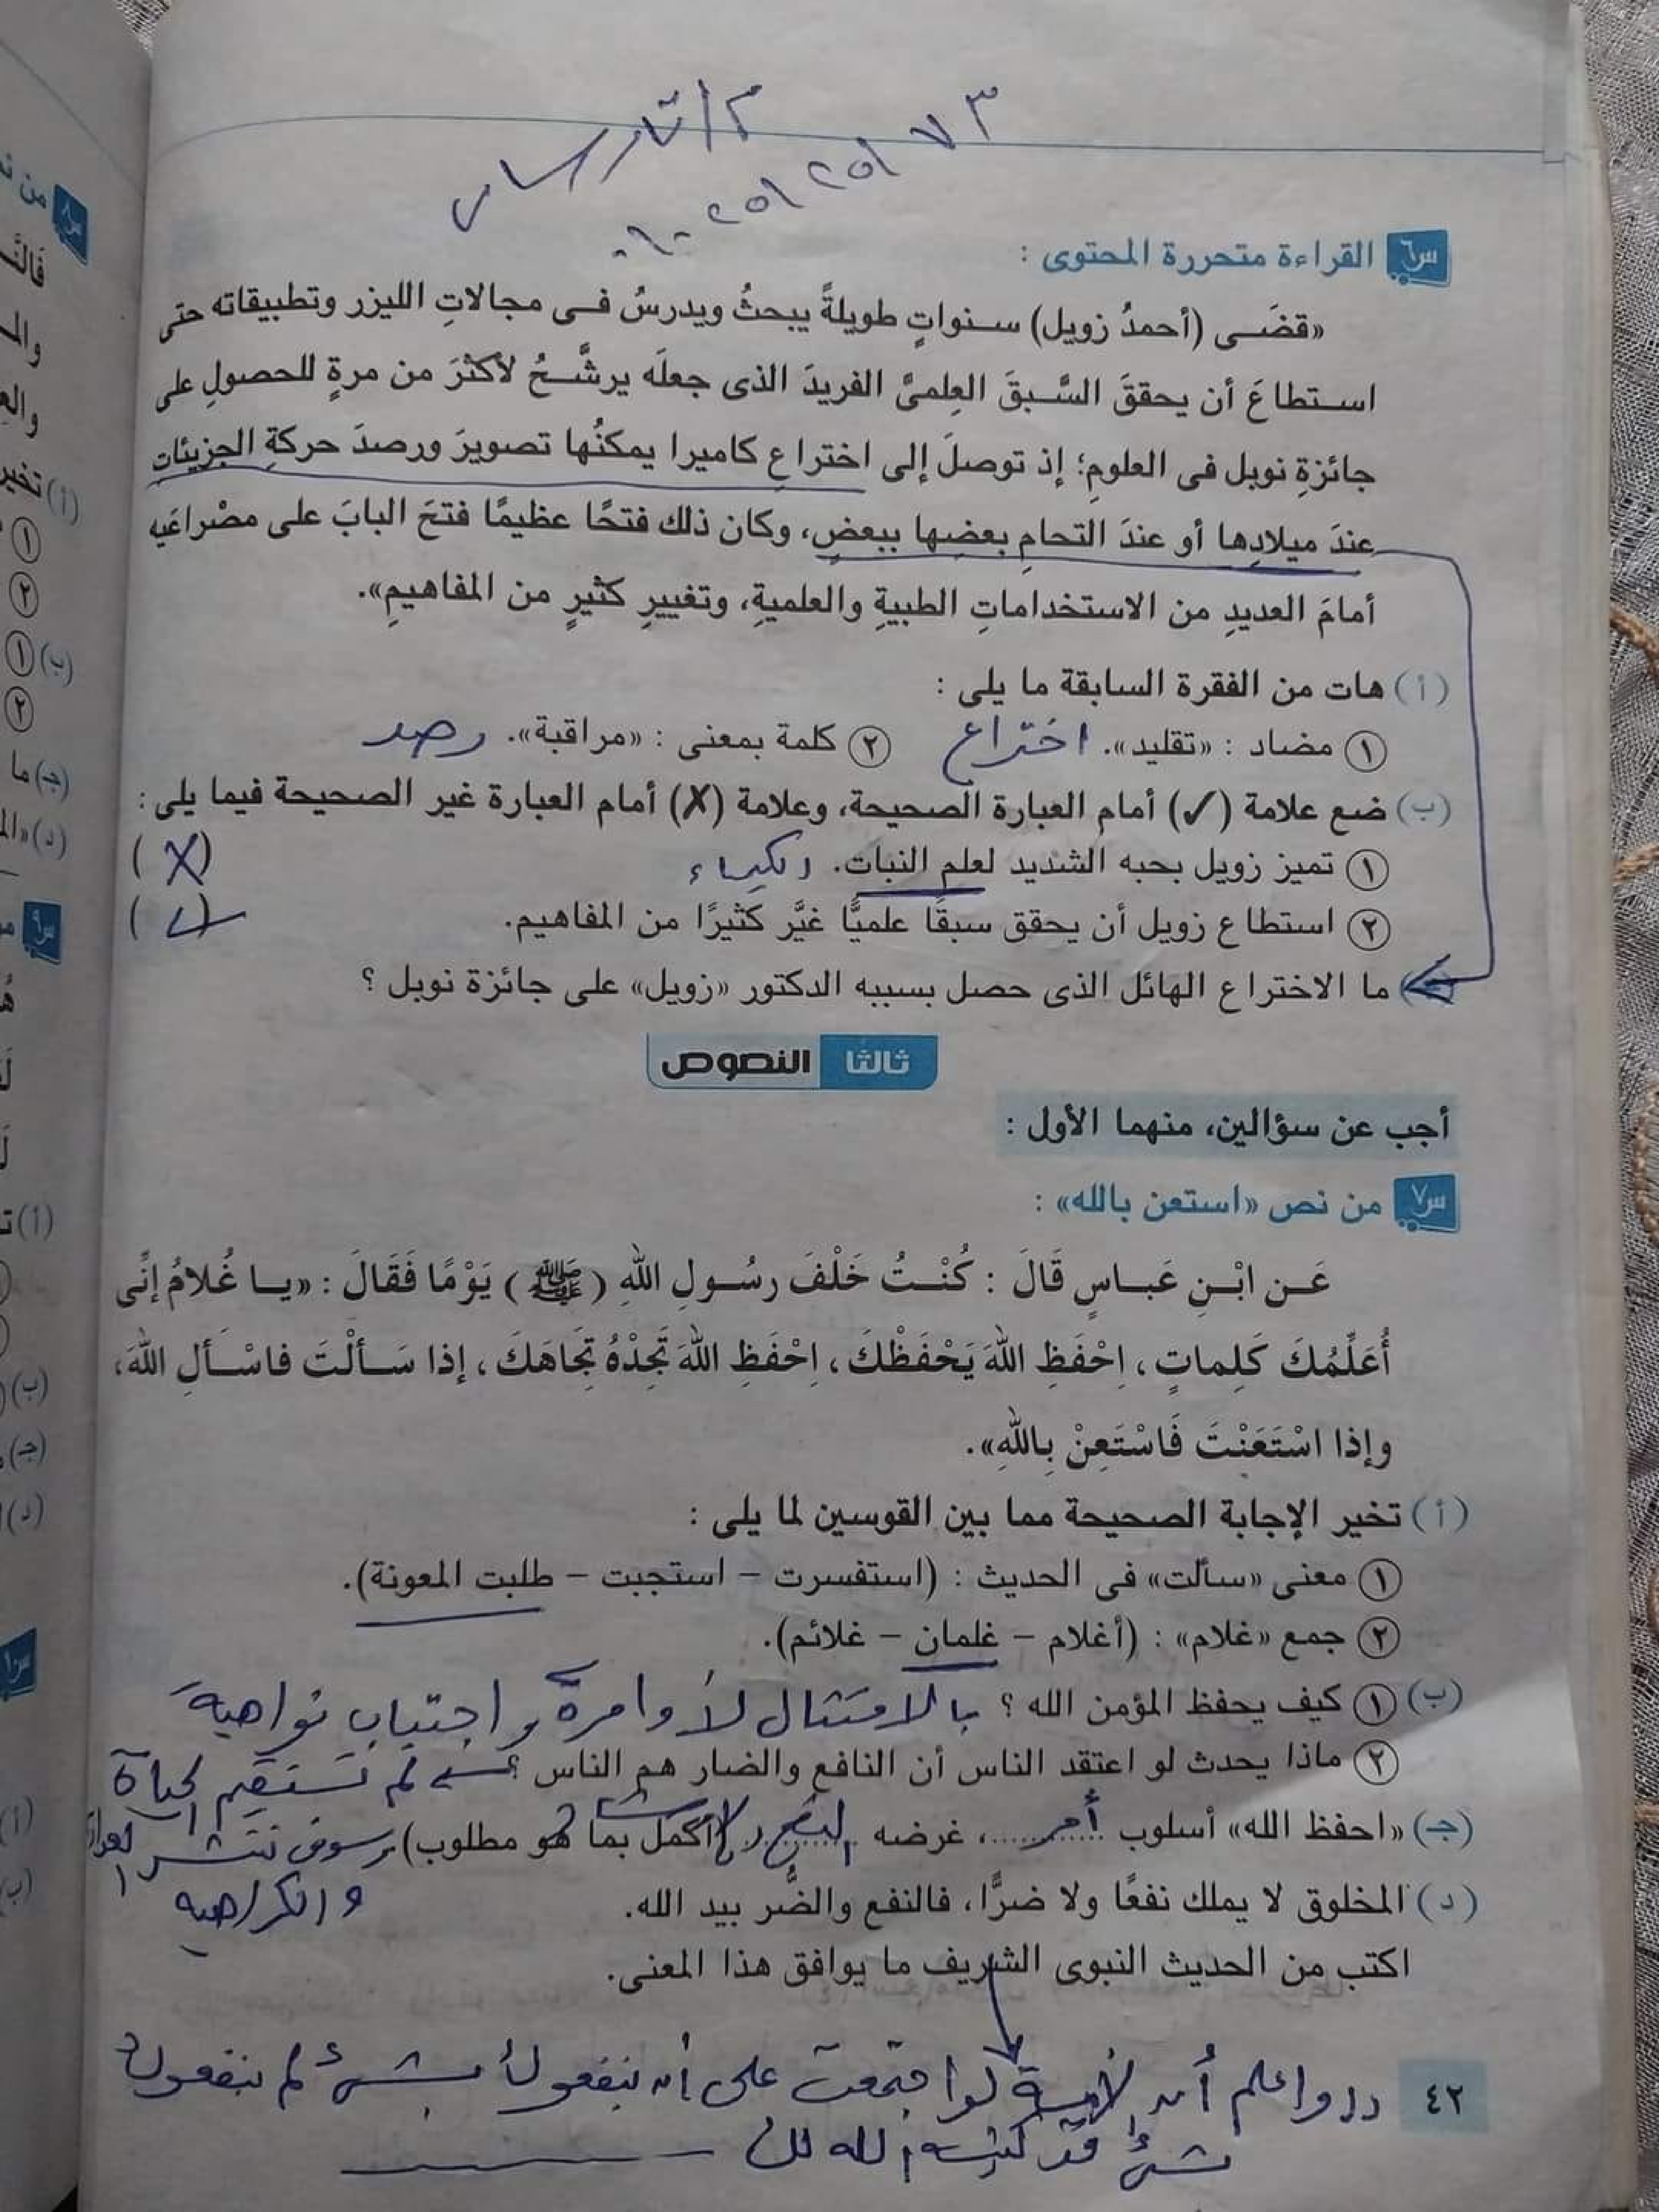 م/ تارساس
٠١٠٠٢٥١٢٥١٧٣
س٦ القراءة متحررة المحتوى :
«قضَى (أحمدُ زويل) سنواتٍ طويلةً يبحثُ ويدرسُ فى مجالاتِ الليزر وتطبيقاته حتى
استطاعَ أن يحققَ السَّبقَ العِلمىَّ الفريدَ الذى جعلَه يرشَّحُ لأكثرَ من مرةٍ للحصولِ على
جائزةِ نوبل فى العلومِ؛ إذ توصلَ إلى اختراعِ كاميرا يمكنُها تصويرَ ورصدَ حركةِ الجزيئاتِ
عندَ ميلادِها أو عندَ التحامِ بعضِها ببعضٍ، وكان ذلك فتحًا عظيمًا فتحَ البابَ على مصْراعَيه
أمامَ العديدِ من الاستخداماتِ الطبيةِ والعلميةِ، وتغييرِ كثيرٍ من المفاهيمِ».
(أ) هات من الفقرة السابقة ما يلى :
١ مضاد : «تقليد». اختراع ٢ كلمة بمعنى : «مراقبة». رصد
(ب) ضع علامة (✓) أمام العبارة الصحيحة، وعلامة (✗) أمام العبارة غير الصحيحة فيما يلى :
١ تميز زويل بحبه الشديد لعلم النبات. الكيمياء (X)
٢ استطاع زويل أن يحقق سبقًا علميًّا غيَّر كثيرًا من المفاهيم. (✓)
ما الاختراع الهائل الذى حصل بسببه الدكتور «زويل» على جائزة نوبل ؟
ثالثا النصوص
أجب عن سؤالين، منهما الأول :
س٧ من نص «استعن بالله» :
عَن ابْنِ عَباسٍ قَالَ : كُنْتُ خَلْفَ رسُولِ اللهِ (ﷺ) يَوْمًا فَقَالَ : «يا غُلامُ إنِّى
أُعَلِّمُكَ كَلِماتٍ، اِحْفَظِ اللهَ يَحْفَظْكَ، اِحْفَظِ اللهَ تَجِدْهُ تِجَاهَكَ، إذا سَألْتَ فاسْألِ اللهَ،
وإذا اسْتَعَنْتَ فَاسْتَعِنْ بِاللهِ».
(أ) تخير الإجابة الصحيحة مما بين القوسين لما يلى :
١ معنى «سألت» فى الحديث : (استفسرت – استجبت – طلبت المعونة).
٢ جمع «غلام» : (أغلام – غلمان – غلائم).
(ب) ١ كيف يحفظ المؤمن الله ؟ بالامتثال لأوامره واجتياب نواهيه
٢ ماذا يحدث لو اعتقد الناس أن النافع والضار هم الناس ؟ لم تستقيم الحياة
(جـ) «احفظ الله» أسلوب أمر، غرضه النصح والإرشاد (أكمل بما هو مطلوب) وسوف تنتشر العداوة
والكراهية
(د) المخلوق لا يملك نفعًا ولا ضرًّا، فالنفع والضُّر بيد الله.
اكتب من الحديث النبوى الشريف ما يوافق هذا المعنى.
واعلم أن الأمة لو اجتمعت على أن ينفعوك بشئ لم ينفعوك
بشئ قد كتبه الله لك
٤٢